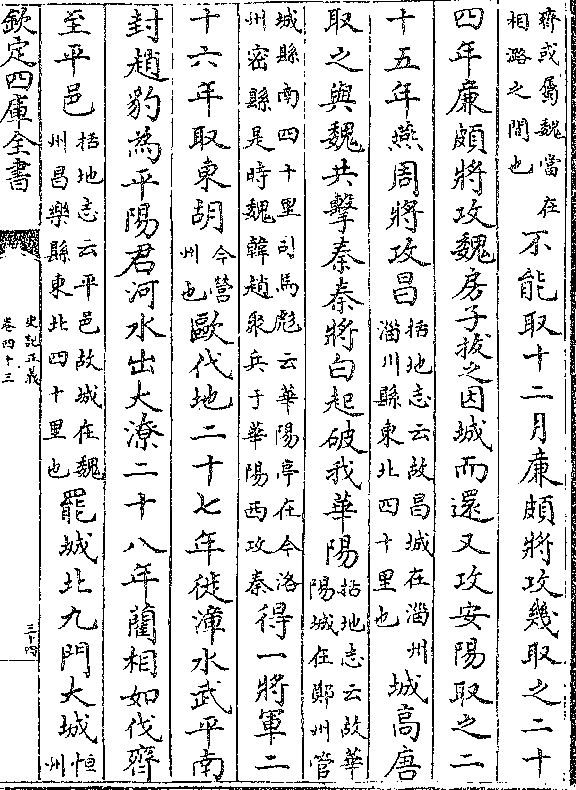 齊或屬魏當在相潞之間也不能取十二月廉頗將攻幾取之二十
四年廉頗將攻魏房子拔之因城而還又攻安陽取之二
十五年燕周將攻昌括地志云故昌城在淄州淄川縣東北四十里也城高唐
取之與魏共擊秦秦將白起破我華陽括地志云故華陽城在鄭州管
城縣南四十里司馬彪云華陽亭在今洛州密縣是時魏韓趙聚兵于華陽西攻秦得一將軍二
十六年取東胡今營州也歐代地二十七年徙漳水武平南
封趙豹為平陽君河水出大潦二十八年藺相如伐齊
至平邑括地志云平邑故城在魏州昌樂縣東北四十里也罷城北九門大城恒州
欽定四庫全書
史記正義
卷四十三
三十四